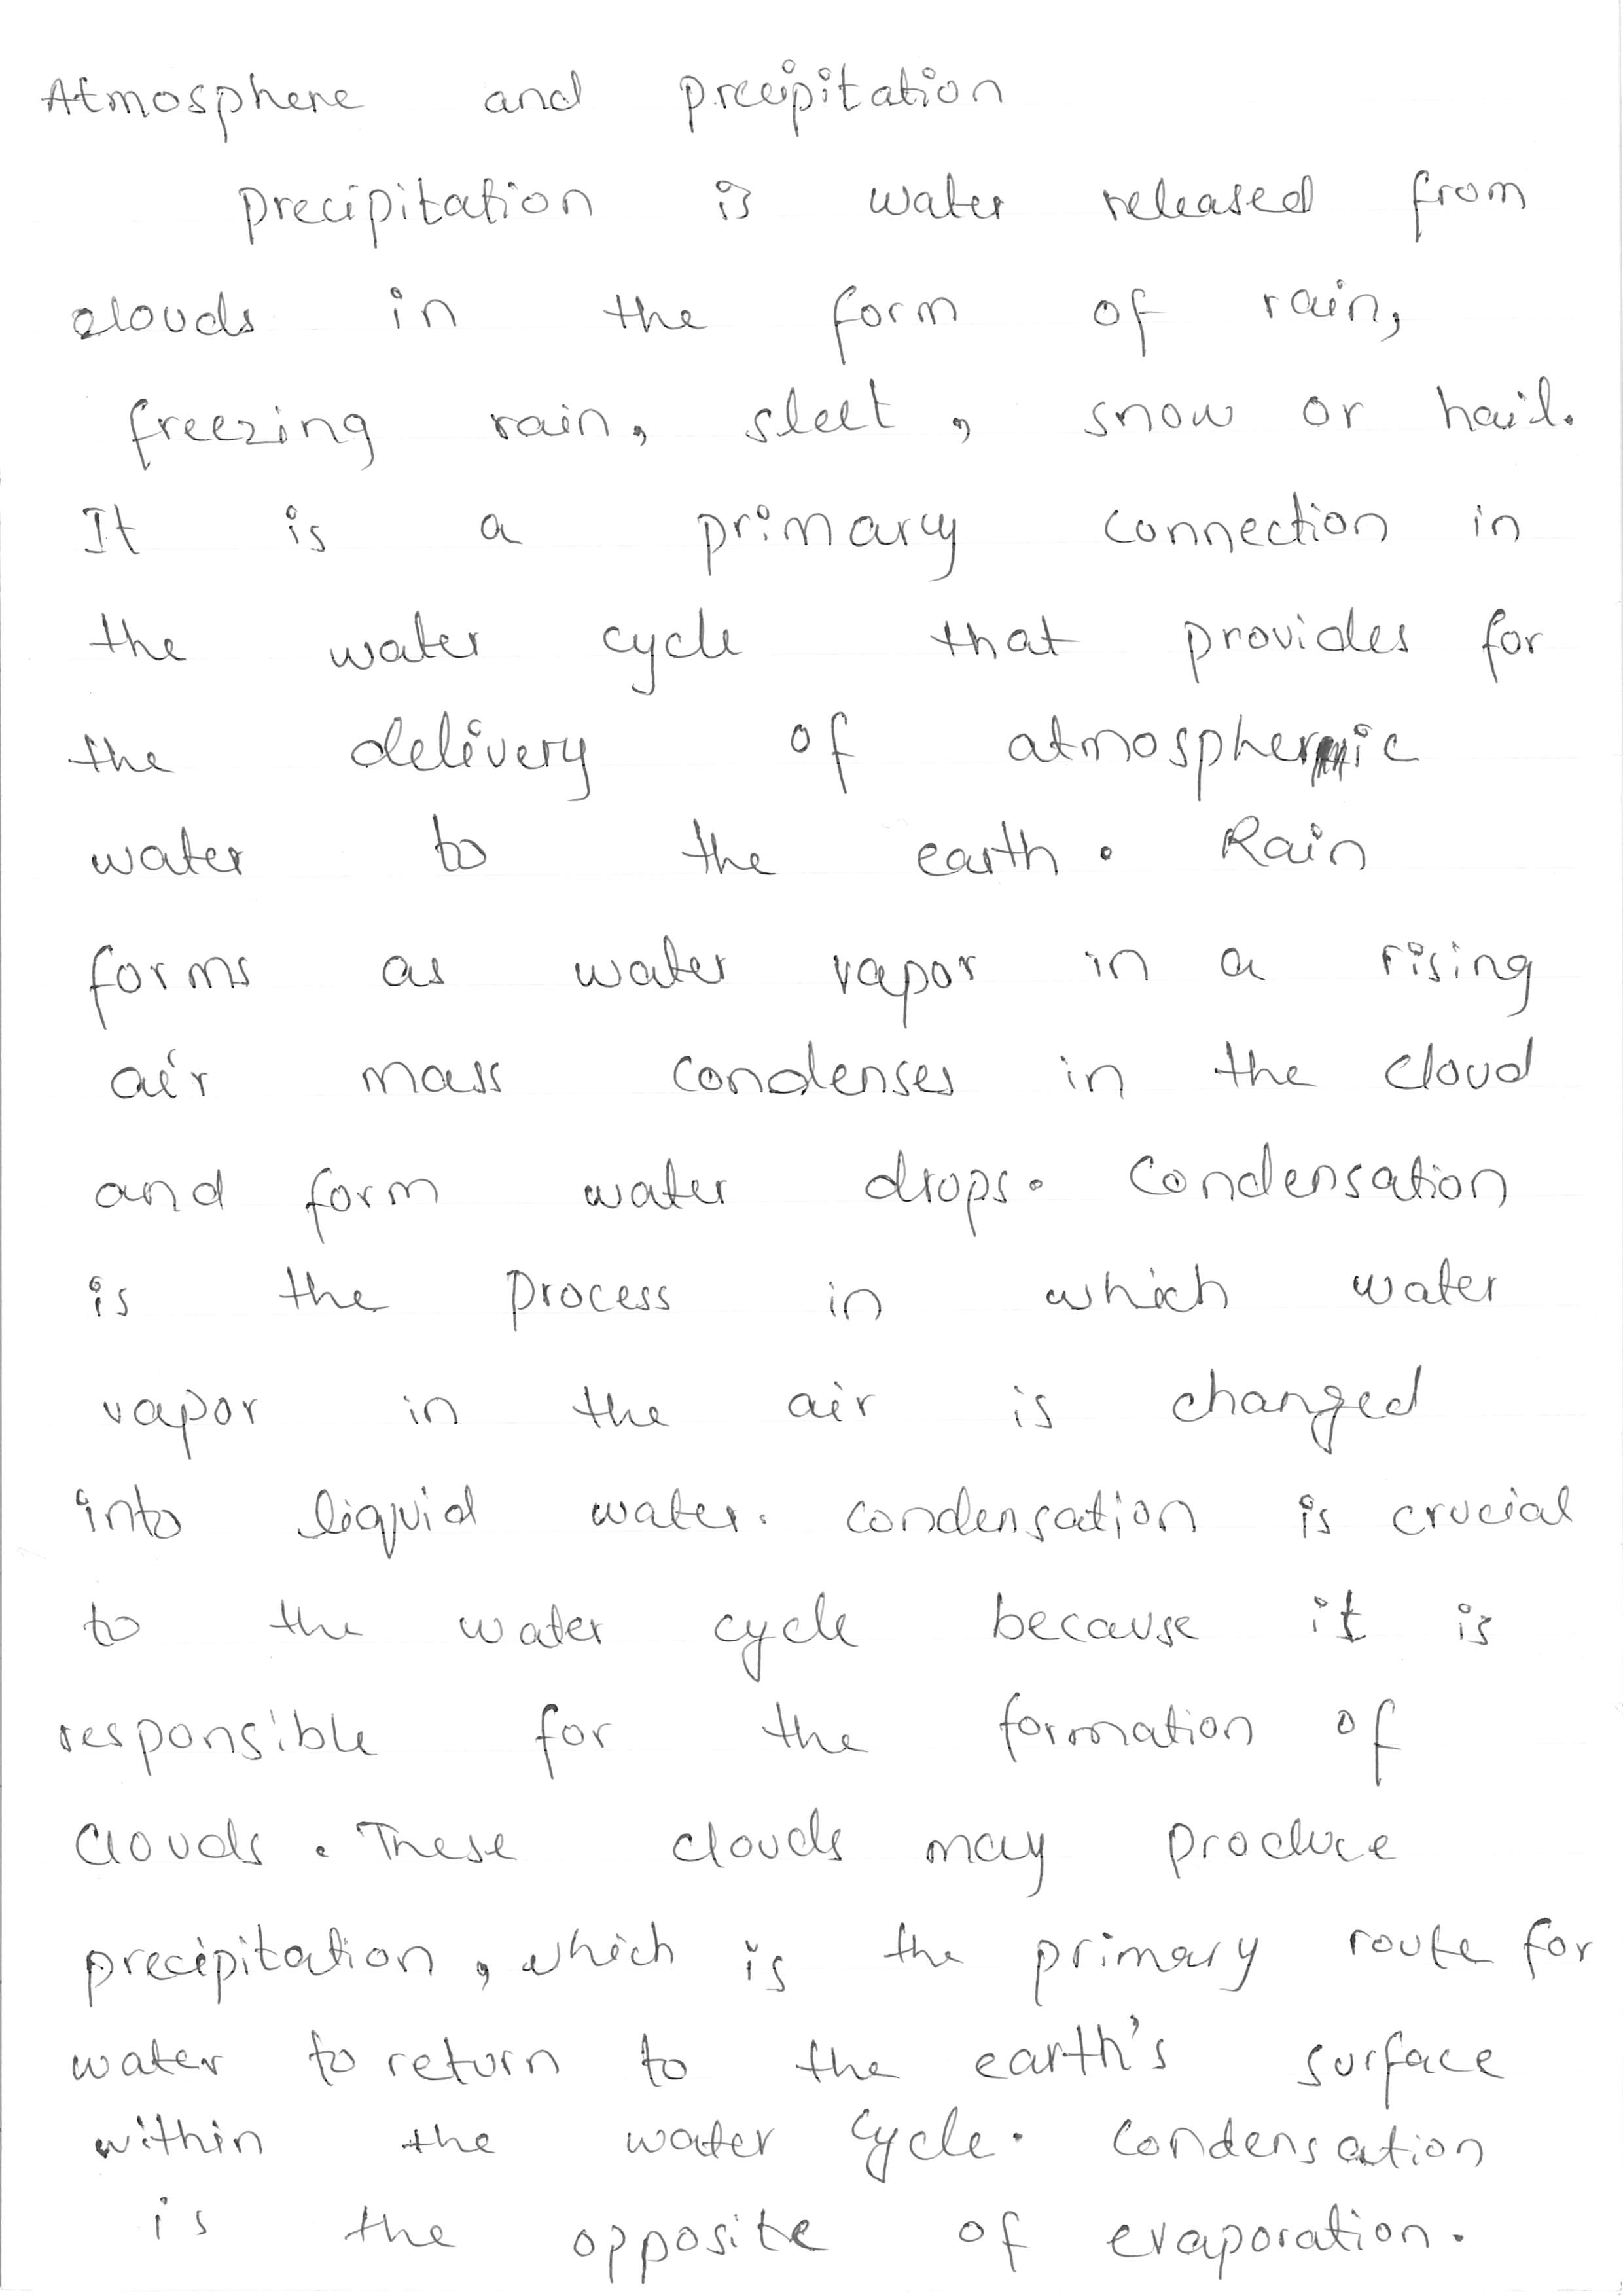 Atmosphere and precipitation
precipitation is water released from
clouds in the form of rain,
freezing rain, sleet, snow or hail.
It is a primary connection in
the water cycle that provides for
the delivery of atmospheric
water to the earth. Rain
forms as water vapor in a rising
air mass condenses in the cloud
and form water drops. Condensation
is the process in which water
vapor in the air is changed
into liquid water. condensation is crucial
to the water cycle because it is
responsible for the formation of
Clouds. These clouds may produce
precipitation, which is the primary route for
water to return to the earth's surface
within the water cycle. Condensation
is the opposite of evaporation.